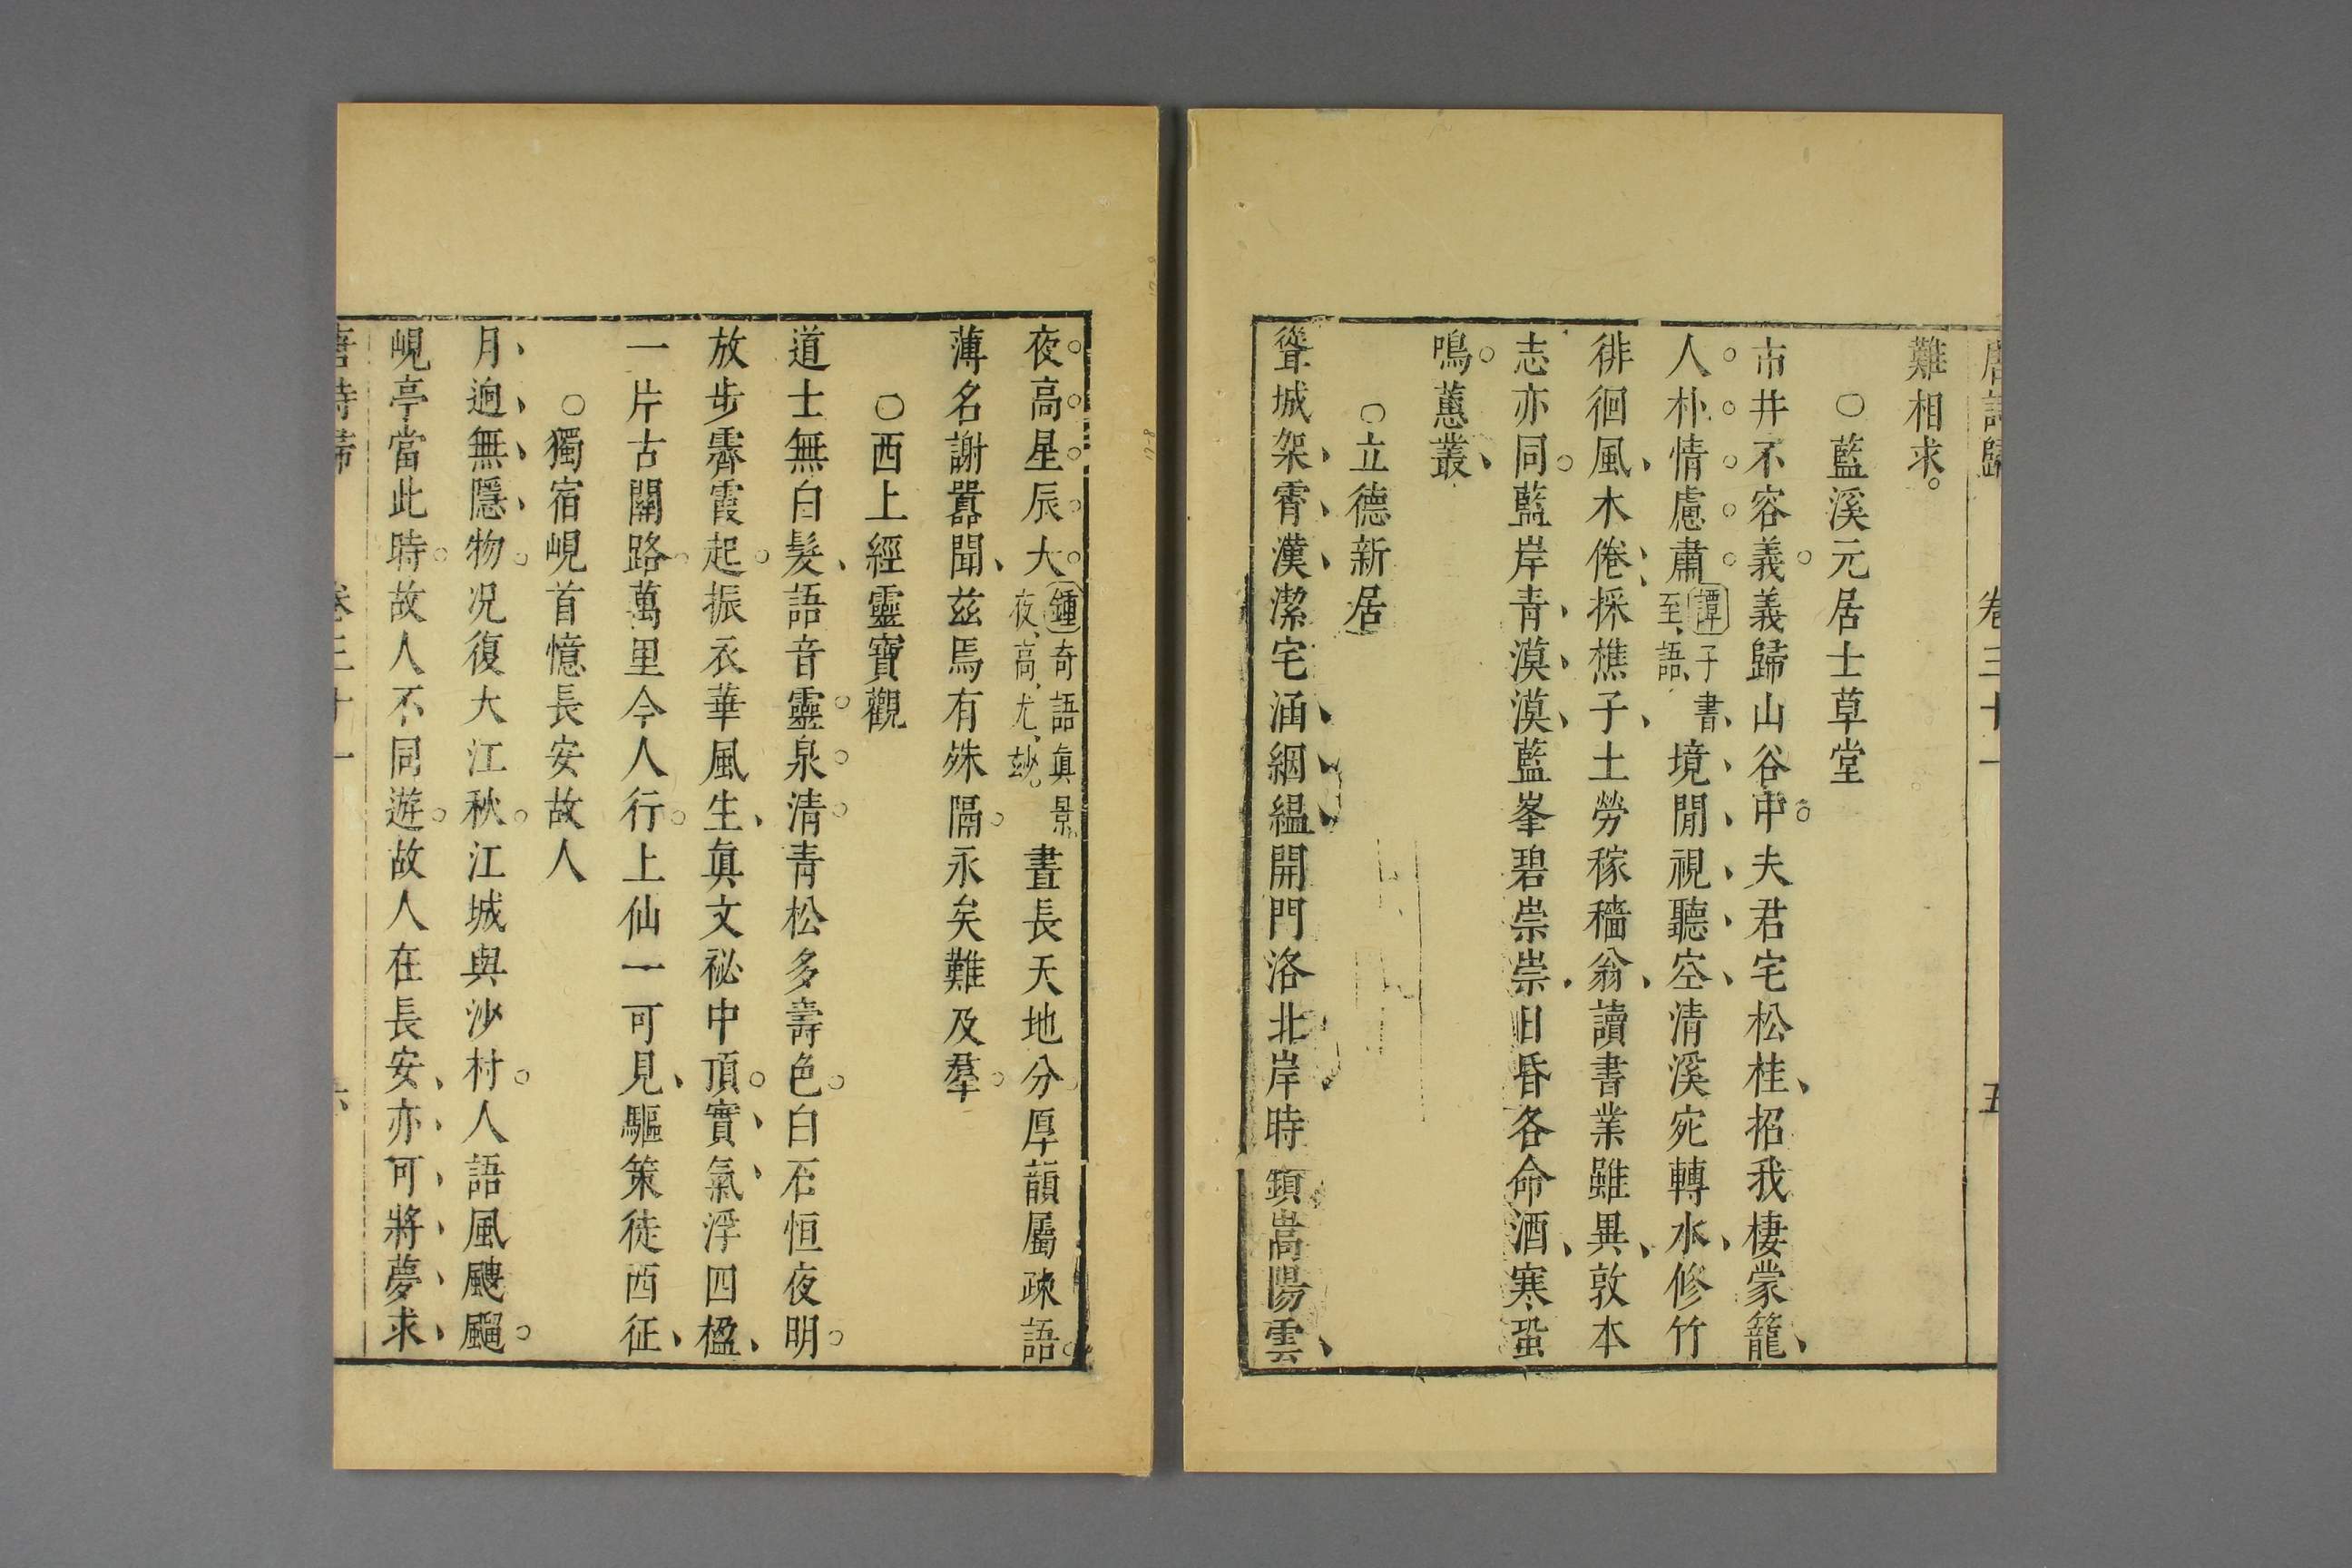 唐詩歸 卷三十一 五
難相求
○藍溪元居士草堂
市井不容義義歸山谷中夫君宅松桂招我棲蒙籠
人朴情慮肅譚子書至語境閒視聽空清溪宛轉水修竹
徘徊風木倦採樵子土勞稼穡翁讀書業雖異敦本
志亦同藍岸青漠漠藍峯碧崇崇旧昏各命酒寒蛩
鳴蕙叢
○立德新居
聳城架霄漢潔宅涵絪縕開門洛北岸時鎖嵩陽雲
夜高星辰大鍾奇語眞景夜高尤妙晝長天地分厚韻屬疎語
薄名謝囂聞茲焉有殊隔永矣難及羣
○西上經靈寶觀
道士無白髮語音靈泉清青松多壽色白石恒夜明
放步霽霞起振衣華風生眞文祕中頂實氣浮四楹
一片古關路萬里今人行上仙一可見驅策徒西征
○獨宿峴首憶長安故人
月逈無隱物况復大江秋江城與沙村人語風颼飀
峴亭當此時故人不同遊故人在長安亦可將夢求
唐詩歸 卷三十一 六